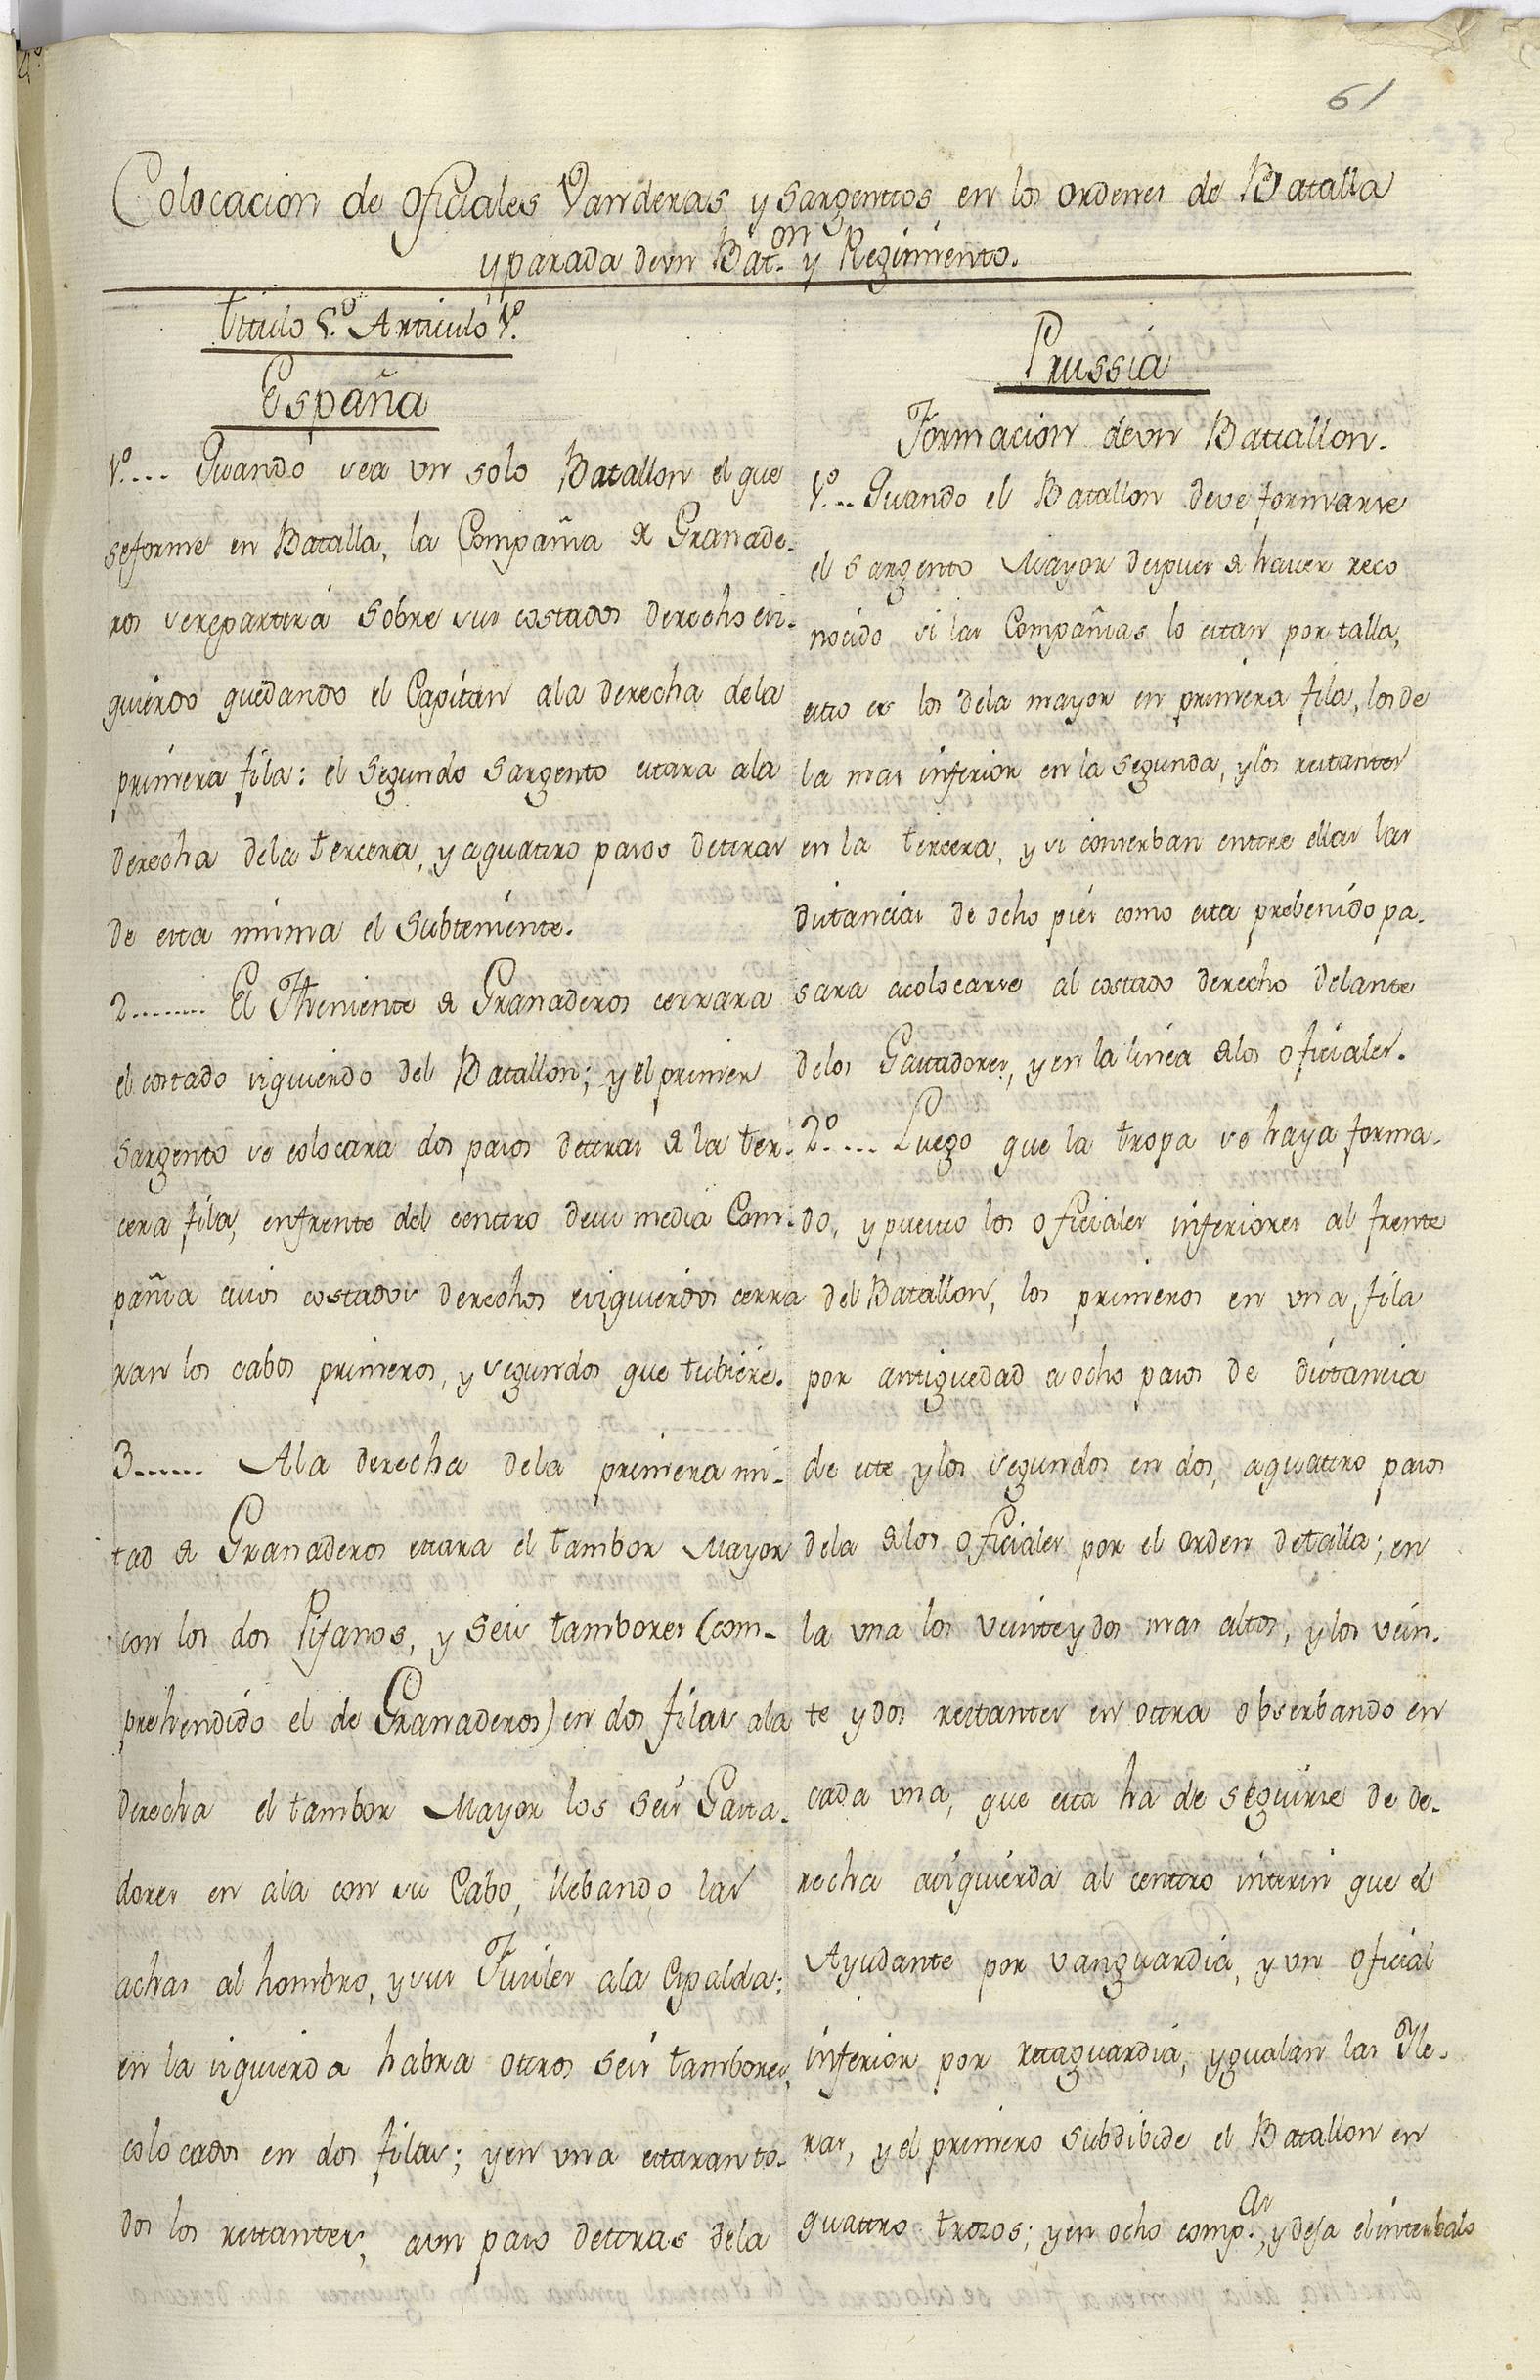 61
Colocacion de oficiales Vanderas y sargentos en los ordenes de Batalla
y parada deun Bat.on y Regimiento.
titulo 5.º Articulo 1.º
España
1.º.... Quando sea un solo Batallon el que
seforme en Batalla, la Compañia de Granade-
ros serepartirá sobre sus costados derecho eiz-
quierdo quedando el Capitan ala derecha dela
primera fila: el segundo sargento estara ala
derecha dela tercera, y aquatro pasos detras
de esta misma el subteniente.
2........ El Theniente de Granaderos cerrara
el costado izquierdo del Batallon; y el primer
sargento se colocara dos pasos detras de la ter-
cera fila, enfrente del centro desu media Com-
pañia cuios costados derechos eizquierdos cerra
ran los cabos primeros, y segundos que tubiere.
3...... Ala derecha dela primera mi-
tad de Granaderos estara el tambor Mayor
con los dos Pifanos, y seis tambores (com-
prehendido el de Granaderos) en dos filas ala
derecha el tambor Mayor los seis Gasta-
dores en ala con su Cabo, llebando las
achas al hombro, ysus Fusiles ala Espalda:
en la izquierda habra otros seis tambores,
colocados en dos filas; yen una estaran to-
dos los restantes, aun paso detras dela
Prussia
Formacion deun Batallon.
1.º... Quando el Batallon deve formarse
el sargento Mayor despues de haver reco
nocido si las Compañias lo estan por talla,
esto es los dela mayor en primera fila, los de
la mas inferior en la segunda, ylos restantes
en la tercera, y si conserban entre ellas las
distancias de ocho pies como esta prebenido pa-
sara acolocarse al costado derecho delante
delos Gastadores, yen la linea delos oficiales.
2.º.... Luego que la tropa se haya forma-
do, y puesto los oficiales inferiores al frente
del Batallon, los primeros en una fila
por antiguedad a ocho pasos de distancia
de este ylos segundos en dos, aquatro pasos
dela delos oficiales por el orden detalla; en
la una los veinteydos mas altos, ylos vein-
te ydos restantes en otra obserbando en
cada una, que esta ha de seguirse de de-
recha aizquierda al centro interin que el
Ayudante por vanguardia, y un oficial
inferior por retaguardia, ygualan las Yle-
ras, y el primero subdibide el Batallon en
quatro trozos; yen ocho comp.as, y deja el interbalo